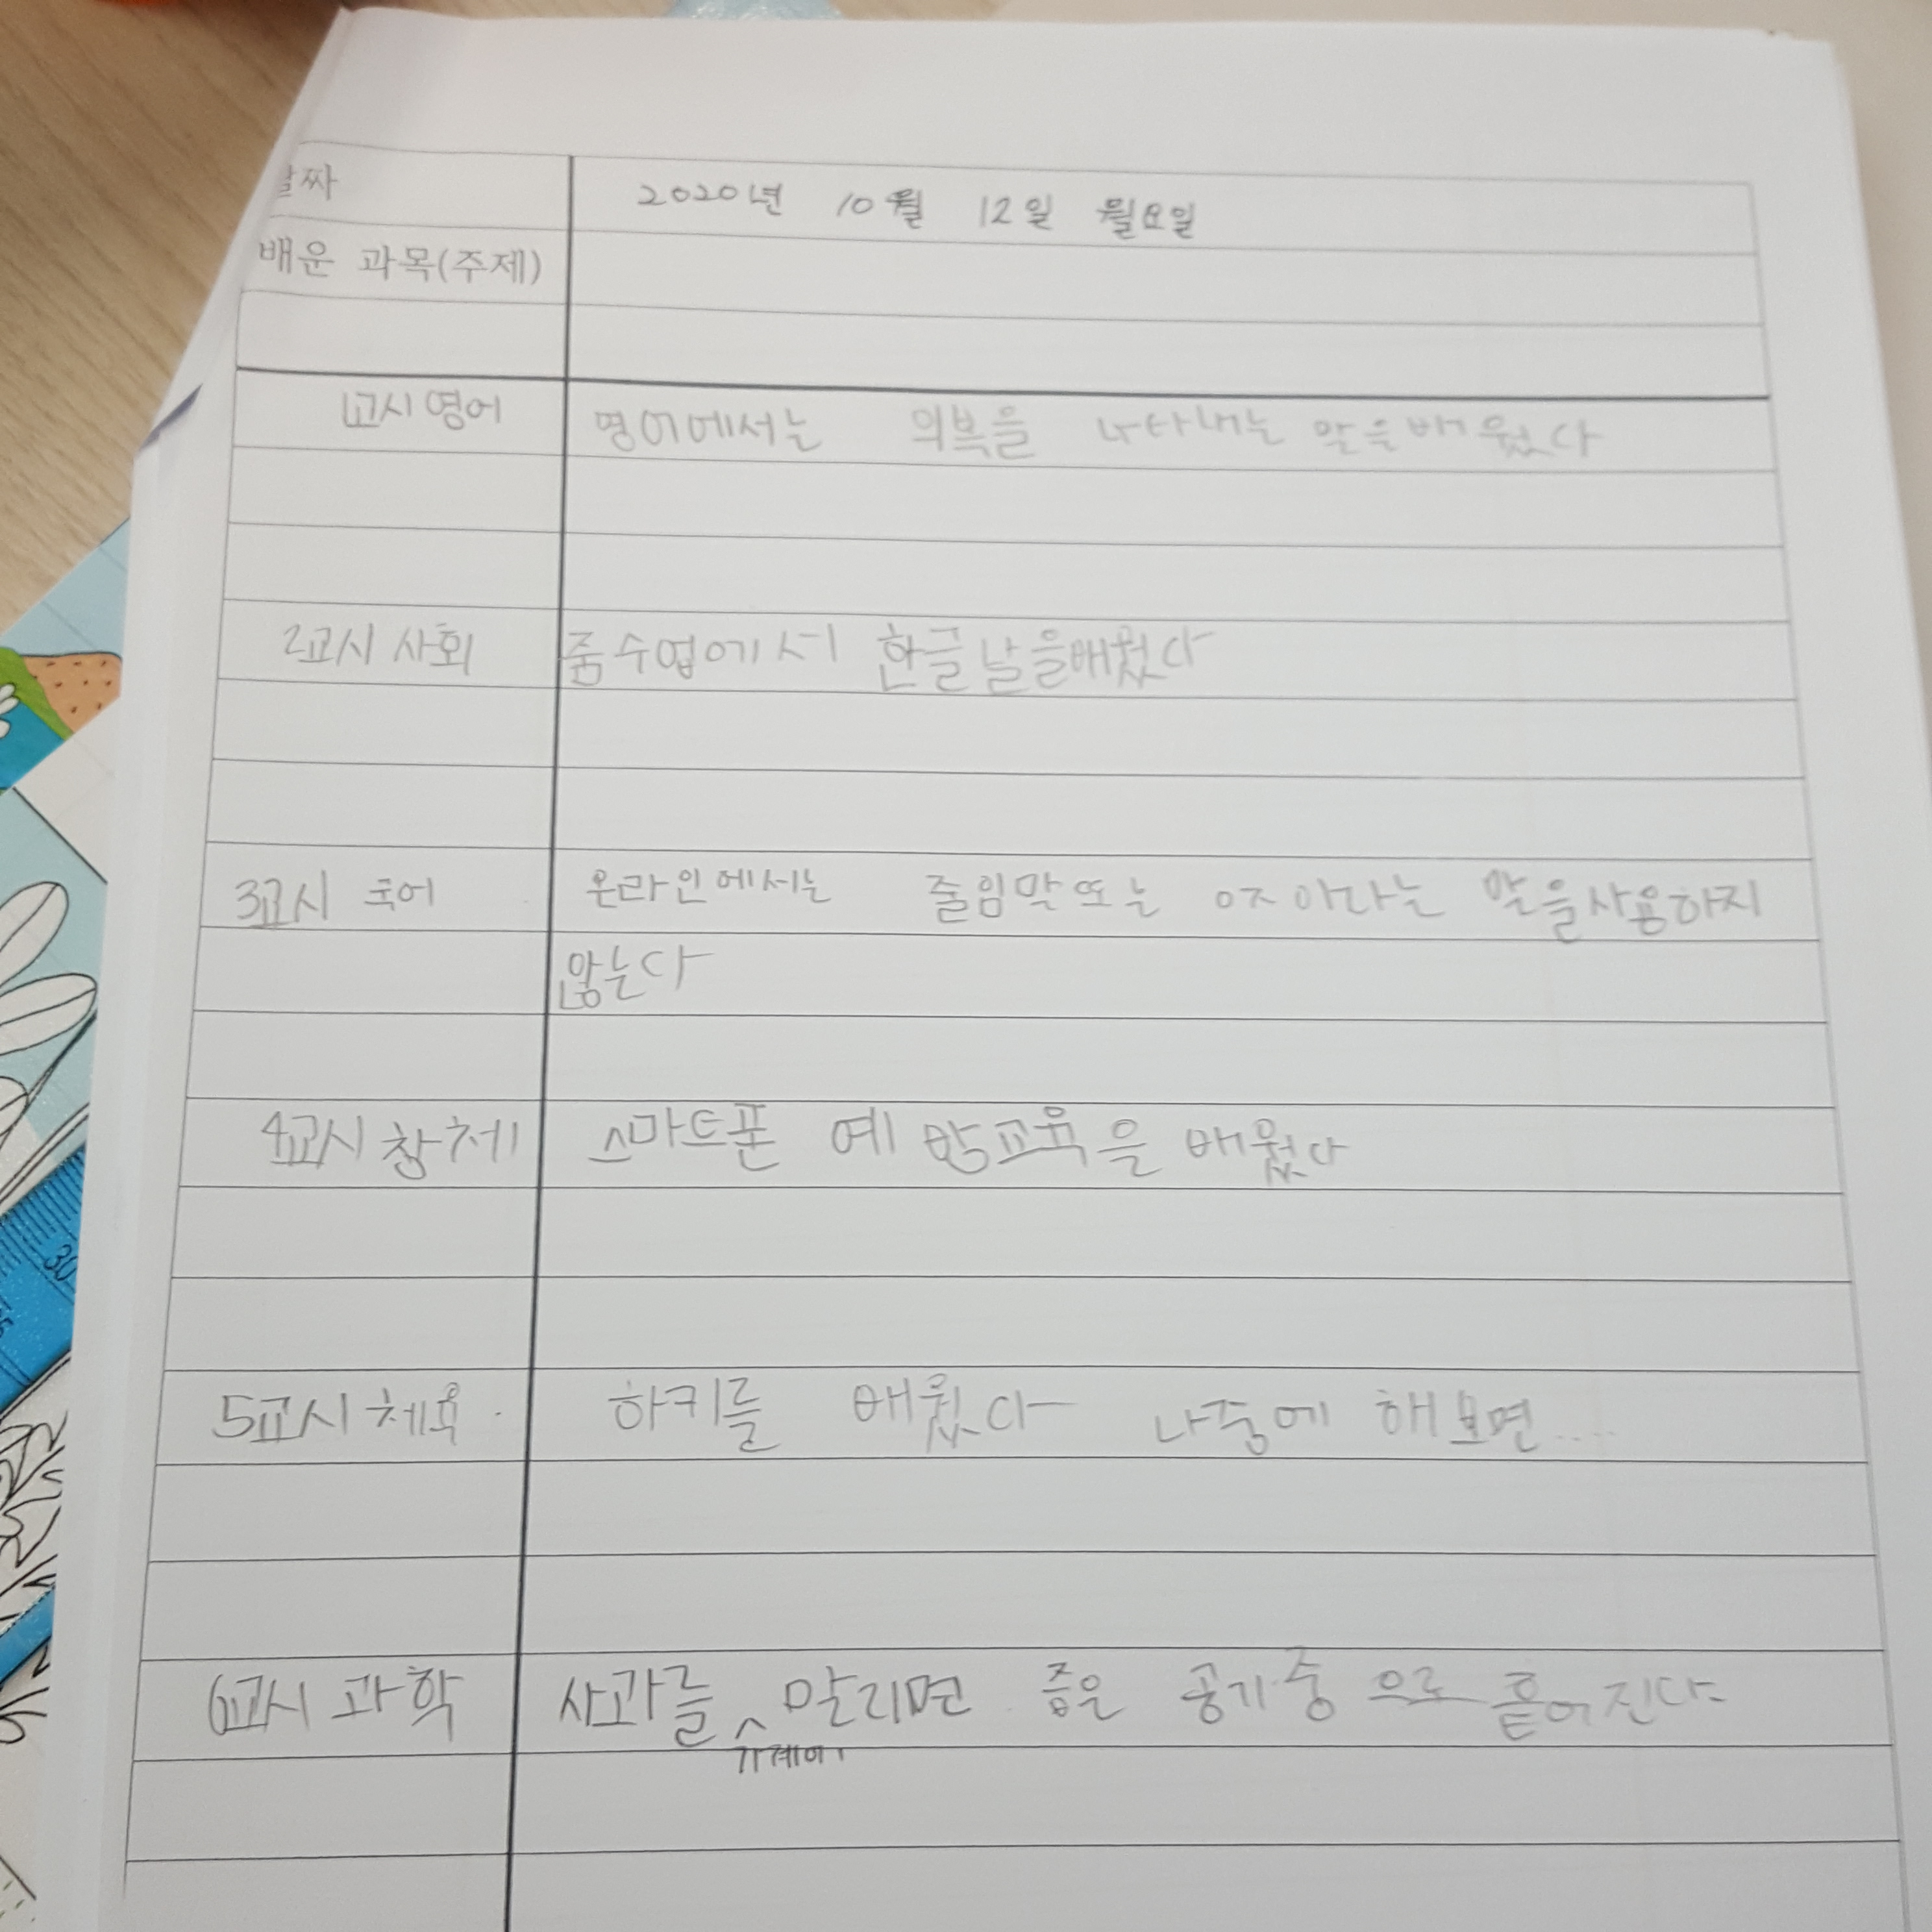 날짜 2020년 10월 12일 월요일
배운 과목(주제)
1교시 영어 영어에서는 의복을 나타내는 말을배웠다
2교시 사회 줌수업에서 한글날을배웠다
3교시 국어 온라인에서는 줄임말또는 ㅇㅈ이라는 말을사용하지
않는다
4교시 창체 스마트폰 예방교육을 배웠다
5교시 체육 하키를 배웠다 나중에 해보면....
6교시 과학 사과를 말리면 즙은 공기중으로 흩어진다
기계에
30